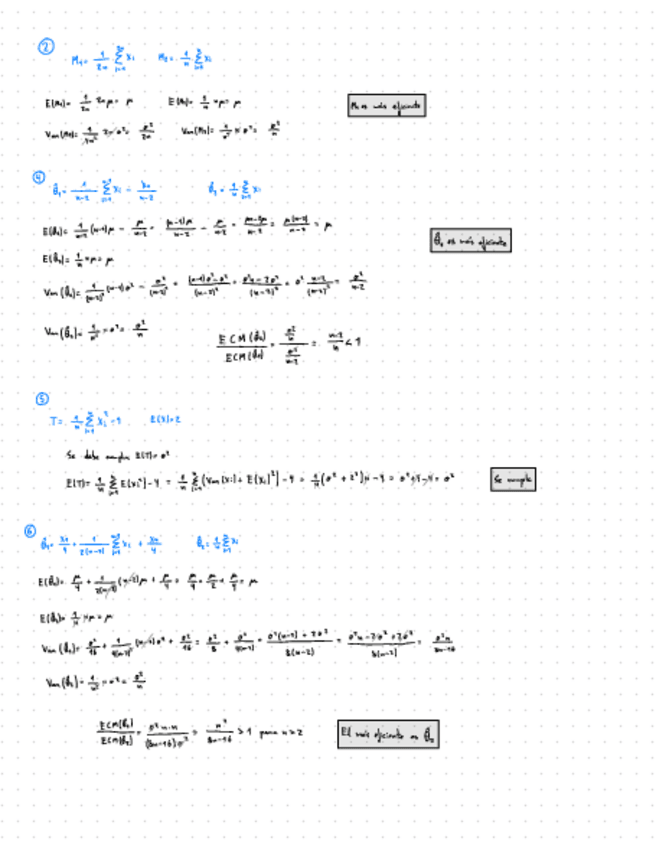 ②
M₁ = 1/2n Σ xi   M₂ = 1/n Σ xi
E(M₁) = 1/2n 2nμ = μ   E(M₂) = 1/n nμ = μ
Var(M₁) = σ²/2n   Var(M₂) = 1/n² n σ² = σ²/n
M₁ es más eficiente
④
θ̂₁ = 1/n-2 Σ xi - xn/n-2   θ̂₂ = 1/n Σ xi
E(θ̂₁) = 1/n-2 (n-1)μ - μ/n-2 = (n-1)μ/n-2 - μ/n-2 = μn-2μ/n-2 = μ(n-2)/n-2 = μ
E(θ̂₂) = 1/n nμ = μ
θ̂₂ es más eficiente
Var(θ̂₁) = 1/(n-2)² (n-1)σ² - σ²/(n-2)² = (n-1)σ²-σ²/(n-2)² = σ²n-2σ²/(n-2)² = σ² n-2/(n-2)² = σ²/n-2
Var(θ̂₂) = 1/n² nσ² = σ²/n
ECM(θ̂₂)/ECM(θ̂₁) = σ²/n / σ²/n-2 = n-2/n < 1
⑤
T = 1/n Σ xi² - 4   E(X) = 2
Se debe cumplir E(T) = σ²
E(T) = 1/n Σ E(xi²) - 4 = 1/n Σ (Var(xi) + E(xi)²) - 4 = 1/n (σ² + 2²)n - 4 = σ² + 4 - 4 = σ²
Se cumple
⑥
θ̂₁ = x₁/4 + 1/2(n-2) Σ xi + xn/4   θ̂₂ = 1/n Σ xi
E(θ̂₁) = μ/4 + 1/2(n-2) (n-2)μ + μ/4 = μ/4 + μ/2 + μ/4 = μ
E(θ̂₂) = 1/n nμ = μ
Var(θ̂₁) = σ²/16 + 1/4(n-2)² (n-2)σ² + σ²/16 = σ²/8 + σ²/4(n-2) = σ²(n-2) + 2σ²/8(n-2) = σ²n-2σ²+2σ²/8(n-2) = σ²n/8n-16
Var(θ̂₂) = 1/n² nσ² = σ²/n
ECM(θ̂₁)/ECM(θ̂₂) = σ² n·n/(8n-16)σ² = n²/8n-16 > 1 para n>2
El más eficiente es θ̂₂